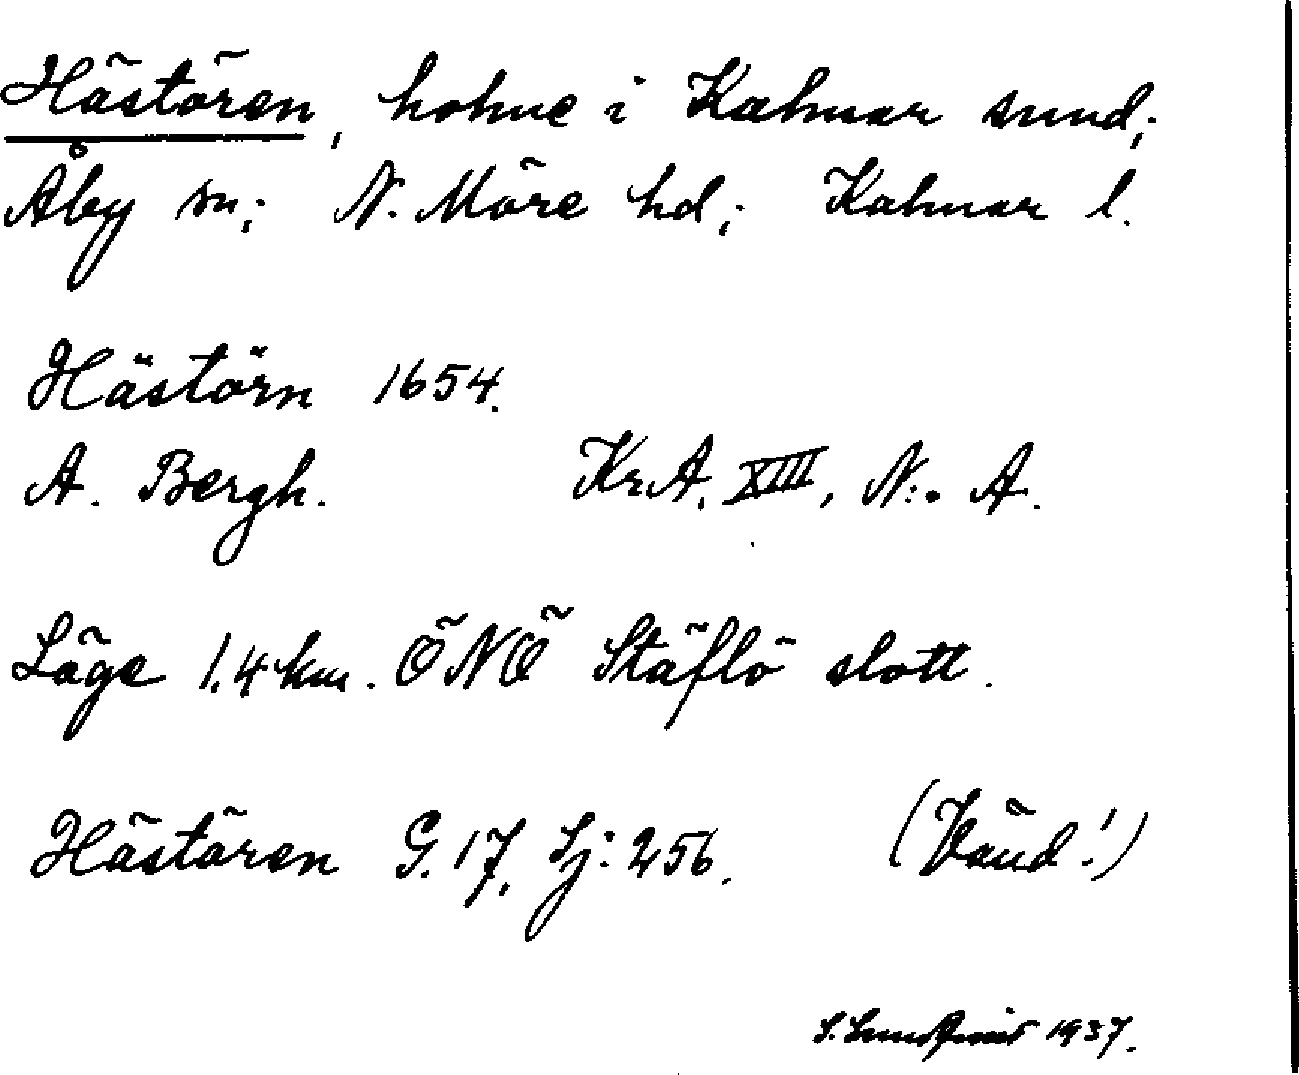 Hästören, holme i Kalmar sund;
Åby sn; N. Möre hd; Kalmar l.
Hästörn 1654.
A. Bergh. Kr.A. XIII, N:o A.
Läge 1.4 km. ÖNÖ Stäflö slott.
Hästören G. 17, Sj: 256. (Vänd!)
S. Lundqvist 1937.